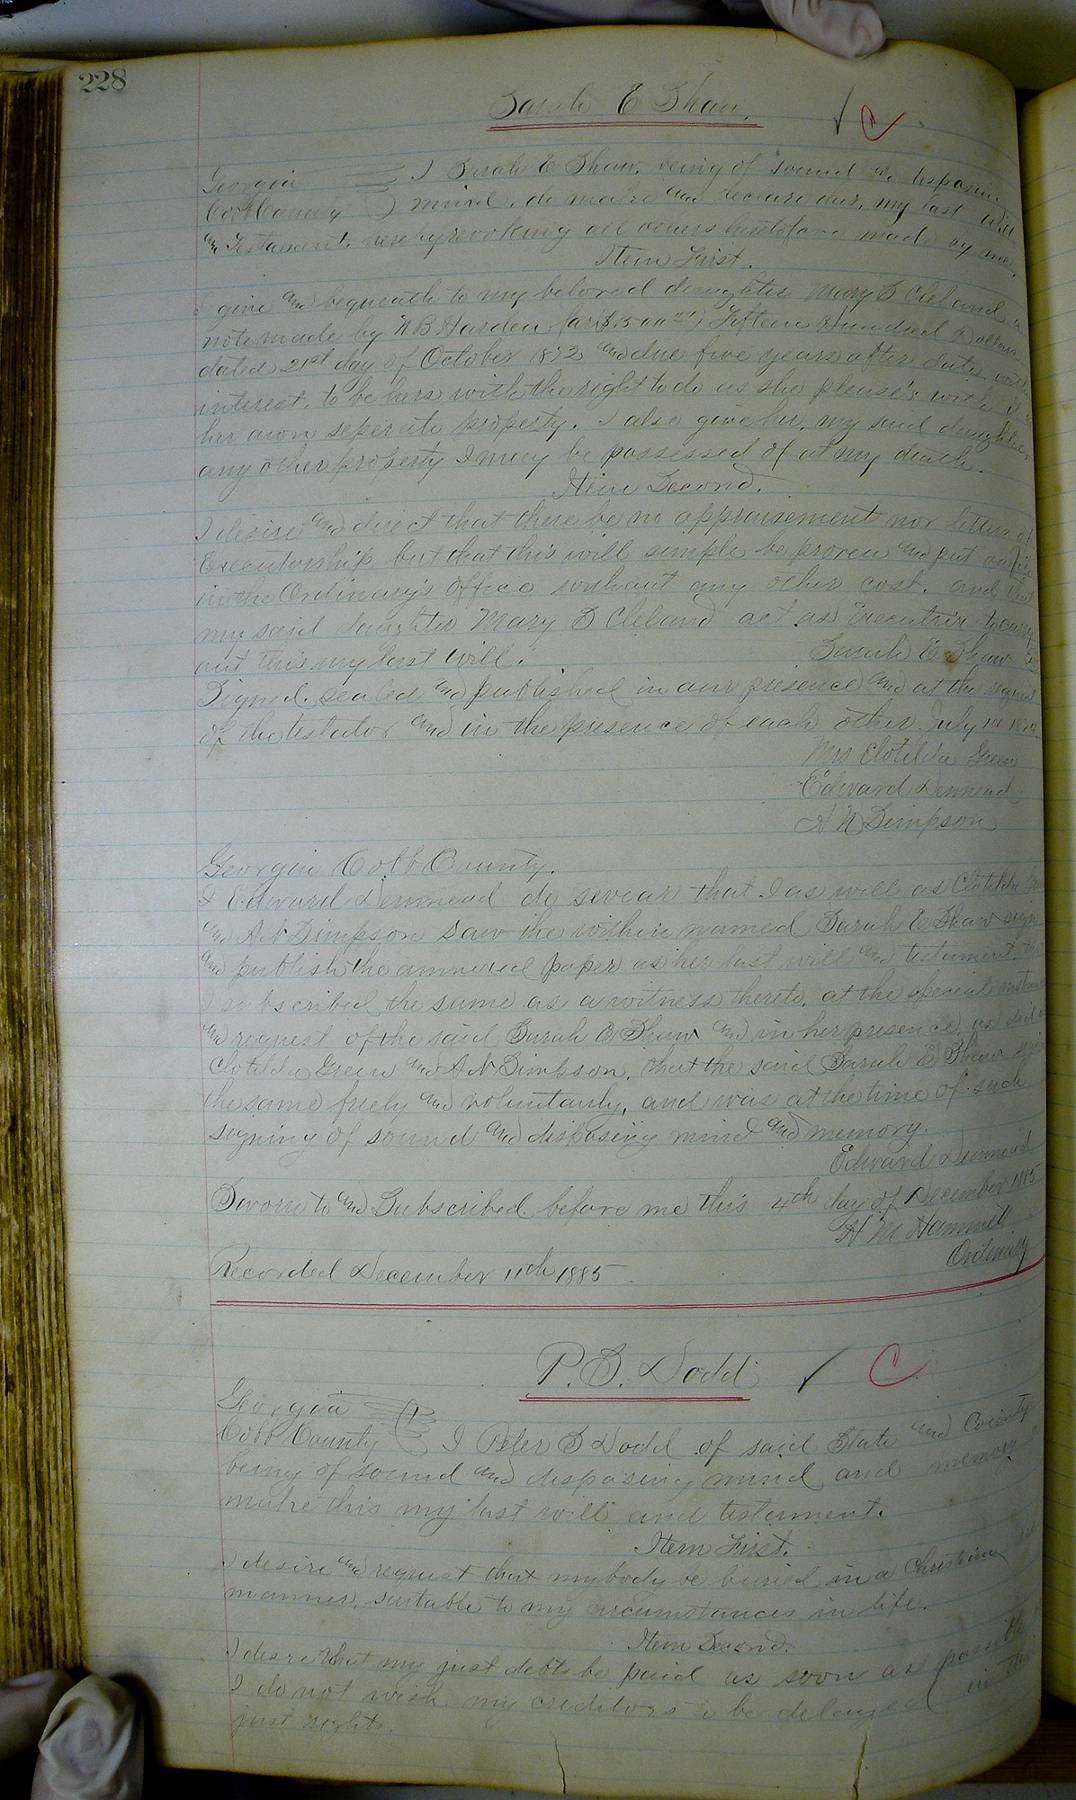 228
Sarah E Shaw.
Georgia I Sarah E Shaw, being of sound and disposing
Cobb County mind, do make and declare this, my last Will
and Testament, hereby revoking all others heretofore made by me.
Item First.
I give and bequeath to my beloved daughter Mary S Cleland a
note made by N B Harden for $1500 Fifteen Hundred Dollars
dated 21st day of October 1872 and due five years after date, with
interest, to be hers with the right to do as she please's with it
her own seperate property. I also give her, my said daughter,
any other property I may be possessed of at my death.
Item Second.
I desire and direct that there be no appraisement nor letters of
Executorship but that this will simple be proven and put
in the Ordinary's office without any other cost. and that
my said daughter Mary S Cleland act as Executrix to carry
out this my last Will. Sarah E Shaw
Signed, sealed and published in our presence and at the
of the testator and in the presence of each other. July
Mrs Clotilda Green
Edward Denmead
A N Simpson
Georgia Cobb County.
I Edward Denmead do swear that I as well as Clotilda
and A N Simpson saw the within named Sarah E Shaw sign
and publish the annexed paper as her last will and testament.
I subscribed the same as a witness thereto, at the special
and request of the said Sarah E Shaw and in her presence, as did
Clotilda Green and A N Simpson, that the said Sarah E Shaw
the same freely and voluntarily, and was at the time of such
signing of sound and disposing mind and memory.
Edward Denmead
Sworn to and Subscribed before me this 4th day of December 1885
H M Hammett
Ordinary
Recorded December 11th 1885
P. S. Dodd C
Georgia
Cobb County I Peter S Dodd of said State and County
being of sound and disposing mind and memory
make this my last will and testament.
Item First.
I desire and request that my body be buried in a Christian
manner, suitable to my circumstances in life.
Item Second.
I desire that my just debts be paid as soon as possible
I do not wish my creditors to be delayed in their
just rights.